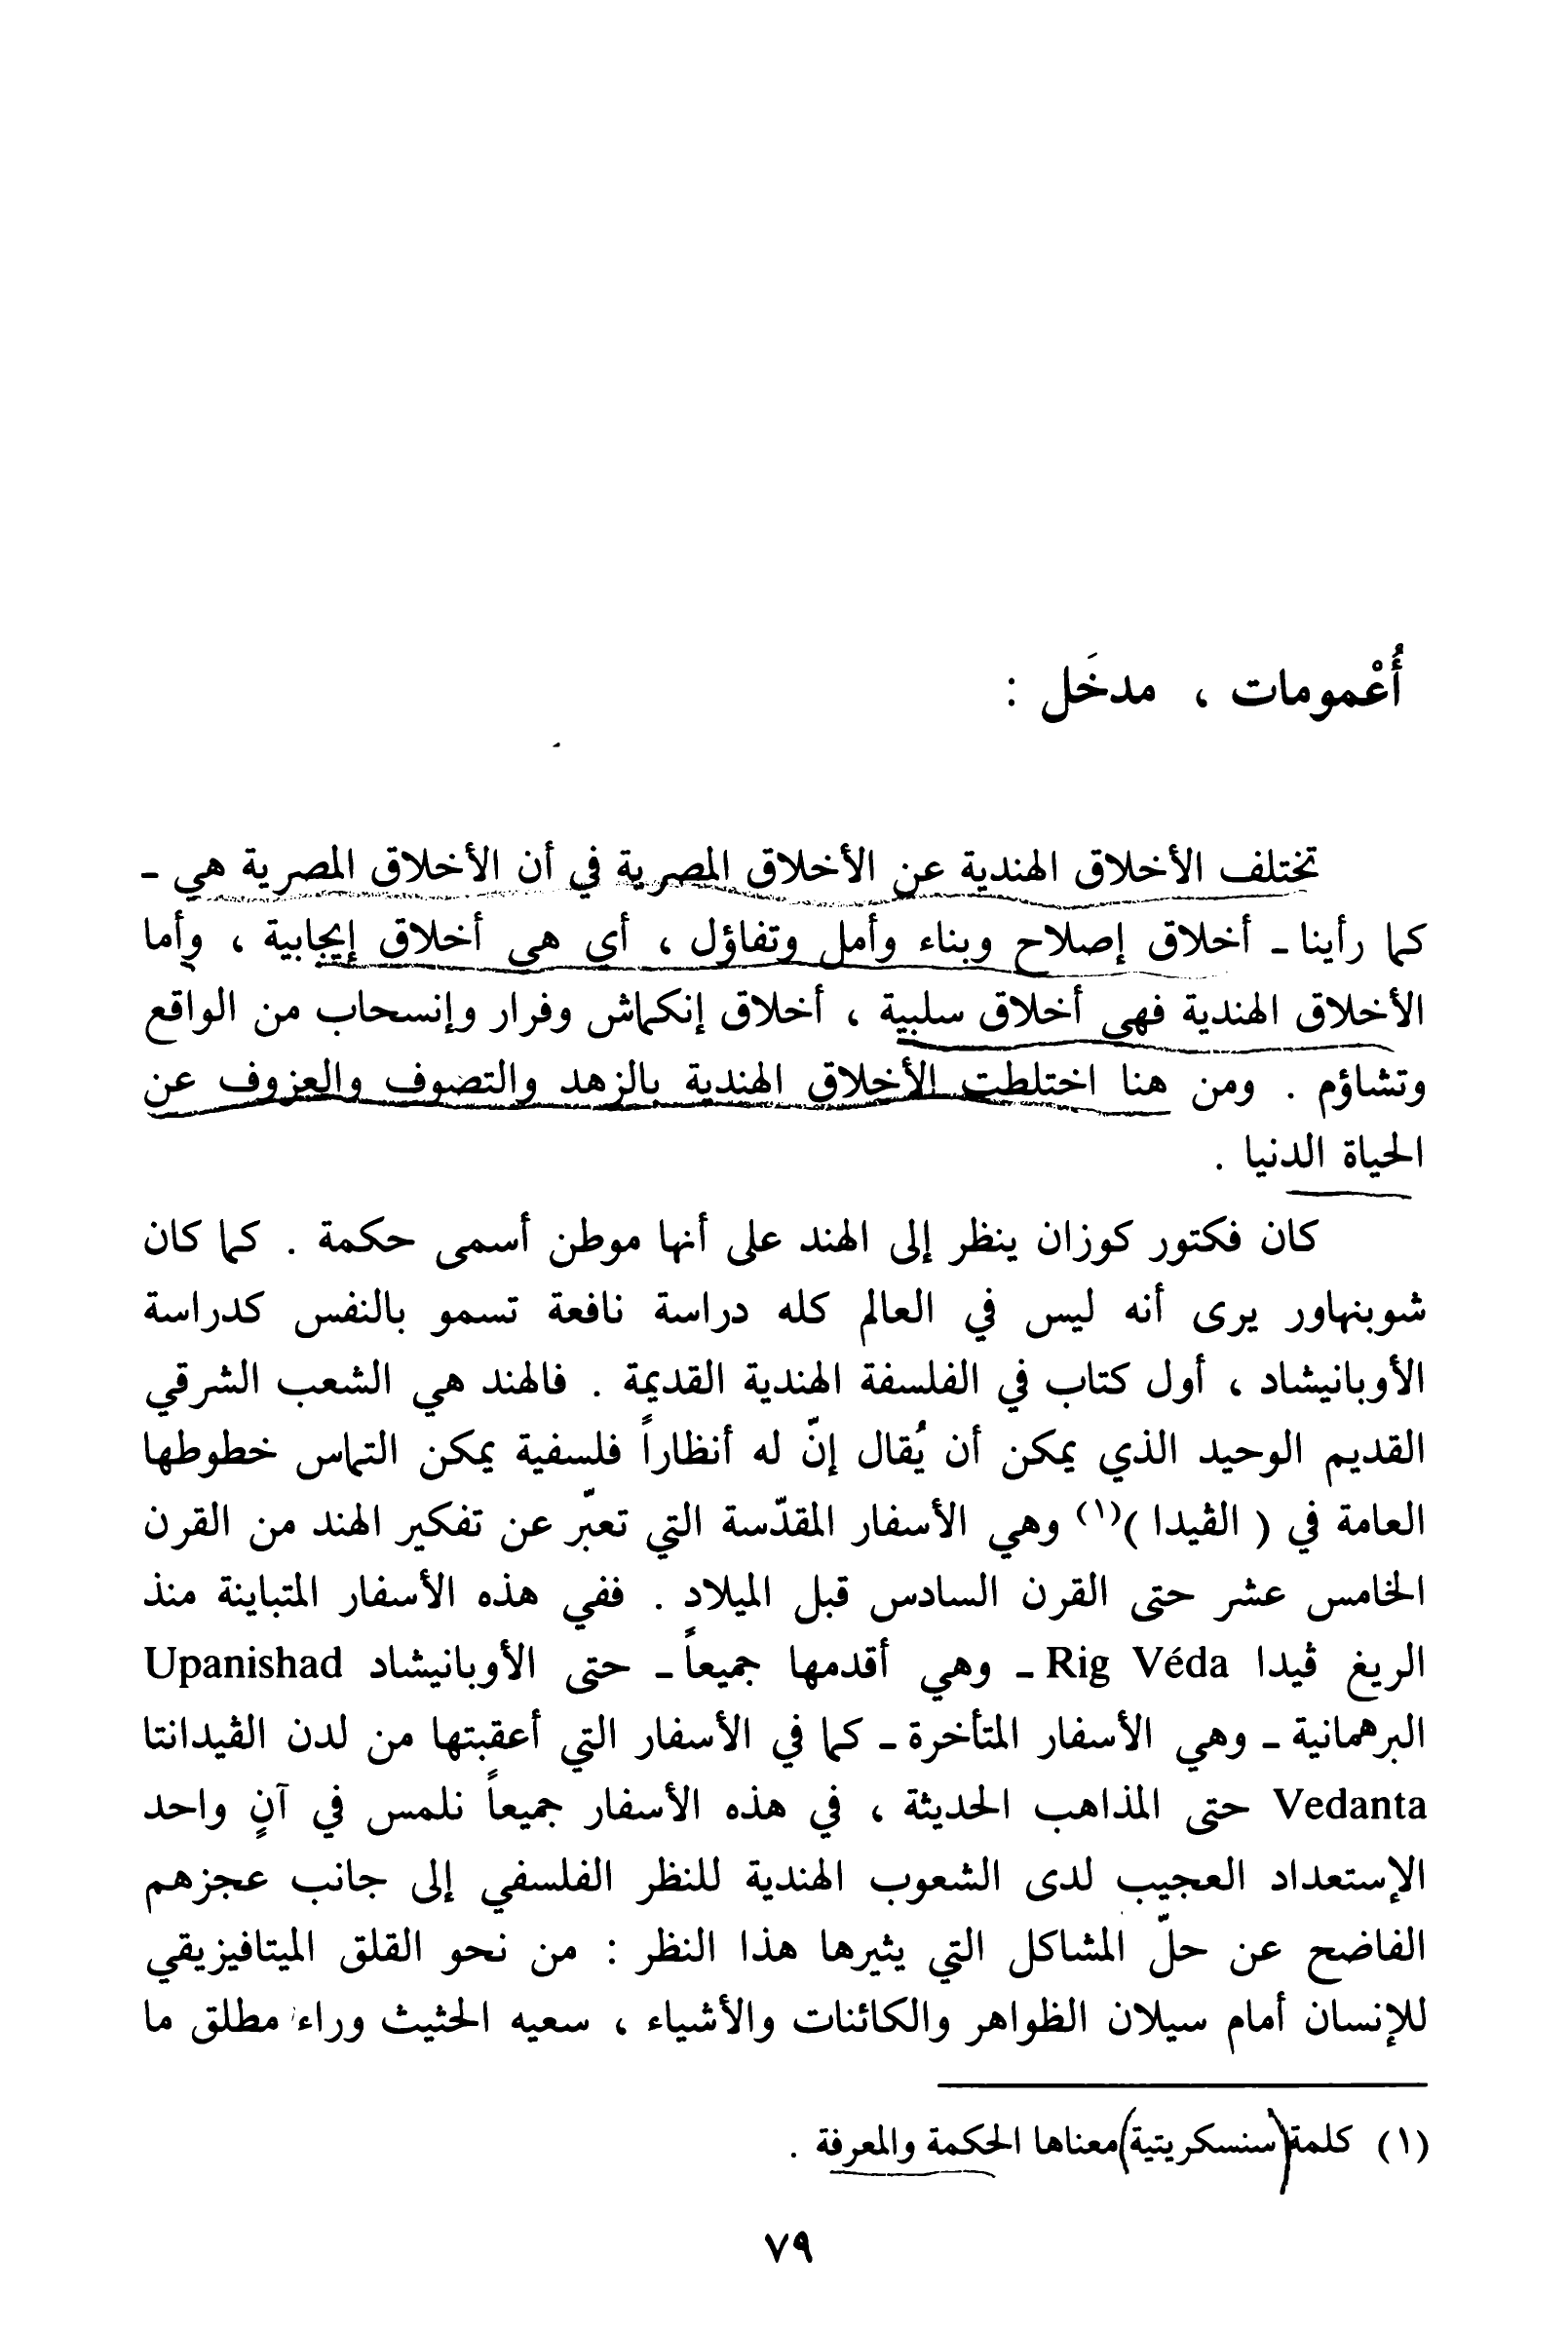 أُعْمومات ، مدخَل :
تختلف الأخلاق الهندية عن الأخلاق المصرية في أن الأخلاق المصرية هي -
كما رأينا - أخلاق إصلاح وبناء وأمل وتفاؤل ، أي هي أخلاق إيجابية ، وأما
الأخلاق الهندية فهي أخلاق سلبية ، أخلاق إنكماش وفرار وإنسحاب من الواقع
وتشاؤم . ومن هنا اختلطت الأخلاق الهندية بالزهد والتصوف والعزوف عن
الحياة الدنيا .
كان فكتور كوزان ينظر إلى الهند على أنها موطن أسمى حكمة . كما كان
شوبنهاور يرى أنه ليس في العالم كله دراسة نافعة تسمو بالنفس كدراسة
الأوبانيشاد ، أول كتاب في الفلسفة الهندية القديمة . فالهند هي الشعب الشرقي
القديم الوحيد الذي يمكن أن يُقال إنّ له أنظاراً فلسفية يمكن التماس خطوطها
العامة في ( الڤيدا )(١) وهي الأسفار المقدّسة التي تعبّر عن تفكير الهند من القرن
الخامس عشر حتى القرن السادس قبل الميلاد . ففي هذه الأسفار المتباينة منذ
الريغ ڤيدا Rig Véda - وهي أقدمها جميعاً - حتى الأوبانيشاد Upanishad
البرهمانية - وهي الأسفار المتأخرة - كما في الأسفار التي أعقبتها من لدن الڤيدانتا
Vedanta حتى المذاهب الحديثة ، في هذه الأسفار جميعاً نلمس في آنٍ واحد
الإستعداد العجيب لدى الشعوب الهندية للنظر الفلسفي إلى جانب عجزهم
الفاضح عن حلّ المشاكل التي يثيرها هذا النظر : من نحو القلق الميتافيزيقي
للإنسان أمام سيلان الظواهر والكائنات والأشياء ، سعيه الحثيث وراء مطلق ما
(١) كلمة (سنسكريتية) معناها الحكمة والمعرفة .
٧٩